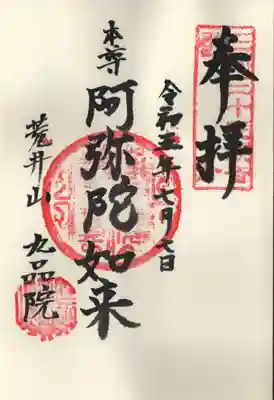 奉拝
令和五年七月七日
本尊
阿弥陀如来
荒井山
九品院